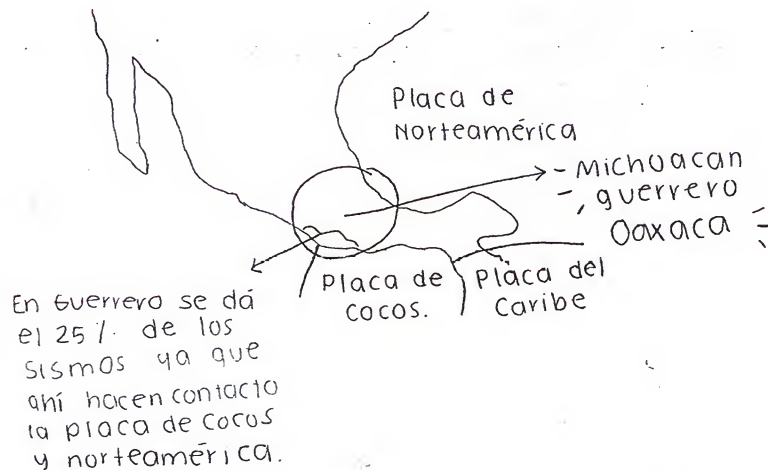 Placa de
Norteamérica
- Michoacan
, guerrero
Oaxaca
Placa de
Cocos.
Placa del
Caribe
En Guerrero se dá
el 25%. de los
sismos ya que
ahí hacen contacto
la placa de cocos
y norteamérica.